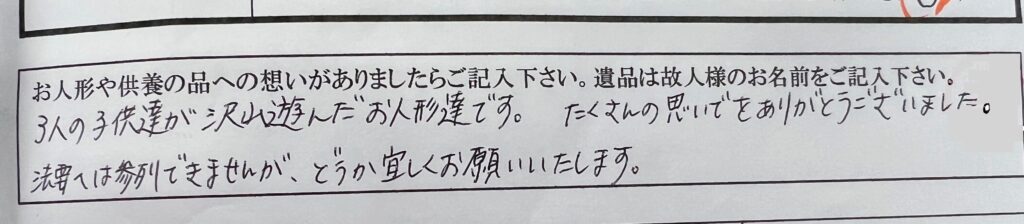 お人形や供養の品への想いがありましたらご記入下さい。遺品は故人様のお名前をご記入下さい。
3人の子供達が沢山遊んだお人形達です。 たくさんの思いでをありがとうございました。
法要へは参列できませんが、どうか宜しくお願いいたします。